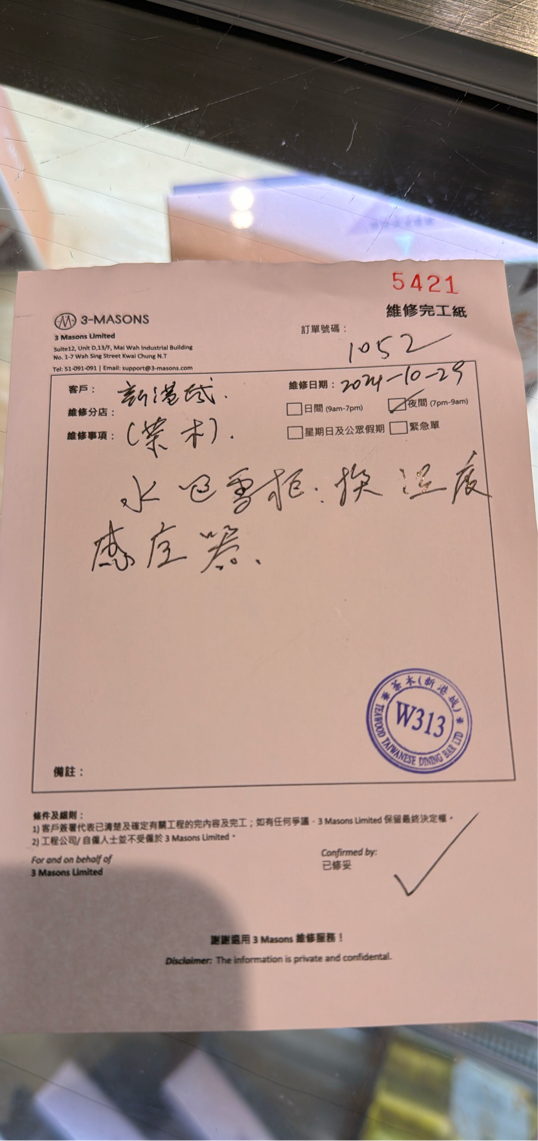 5421
維修完工紙
3-MASONS
3 Masons Limited
Suite12, Unit D,13/F, Mai Wah Industrial Building
No. 1-7 Wah Sing Street Kwai Chung N.T
Tel: 51-091-091 | Email: support@3-masons.com
訂單號碼：
1052
客戶： 新港城.
維修日期：2024-10-29
維修分店：
日間 (9am-7pm) 夜間 (7pm-9am)
維修事項： (茶木).
星期日及公眾假期 緊急單
水吧雪柜. 換溫度
感应器.
茶木(新港城)
W313
TEAWOOD TAIWANESE DINING BAR LTD
備註：
條件及細則：
1) 客戶簽署代表已清楚及確定有關工程的完內容及完工；如有任何爭議，3 Masons Limited 保留最終決定權。
2) 工程公司/ 自僱人士並不受僱於 3 Masons Limited。
For and on behalf of
3 Masons Limited
Confirmed by:
已修妥
謝謝選用 3 Masons 維修服務！
Disclaimer: The information is private and confidental.